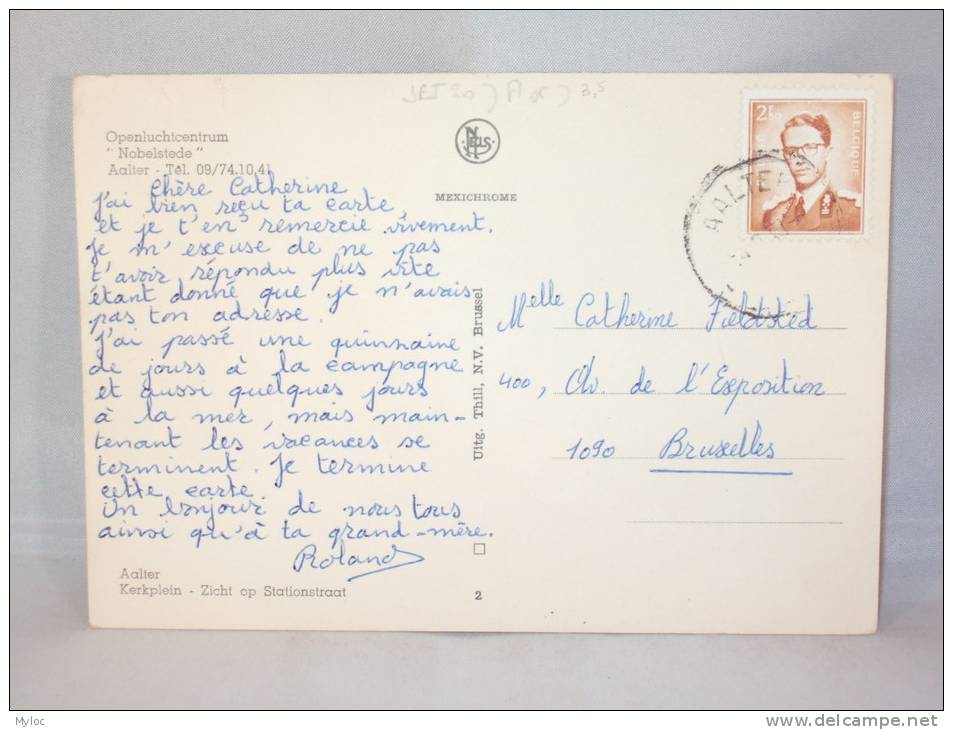 JRJ 20) A
3,5
Openluchtcentrum
" Nobelstede "
Aalter - Tél. 09/74.10.41
NELS
MEXICHROME
2F50
BELGIQUE
AALTER
Chère Catherine
J'ai bien reçu ta carte,
et je t'en remercie vivement.
Je m'excuse de ne pas
t'avoir répondu plus vite
étant donné que je n'avais
pas ton adresse.
J'ai passé une quinzaine
de jours à la campagne
et aussi quelques jours
à la mer, mais main-
tenant les vacances se
terminent. Je termine
cette carte.
Un bonjour de nous tous
ainsi qu'à ta grand-mère.
Roland
Uitg. Thill, N.V. Brussel
Melle Catherine Fieldsted
400, Av. de l'Exposition
1090 Bruxelles
Aalter
Kerkplein - Zicht op Stationstraat
2
Myloc
delcampe.net